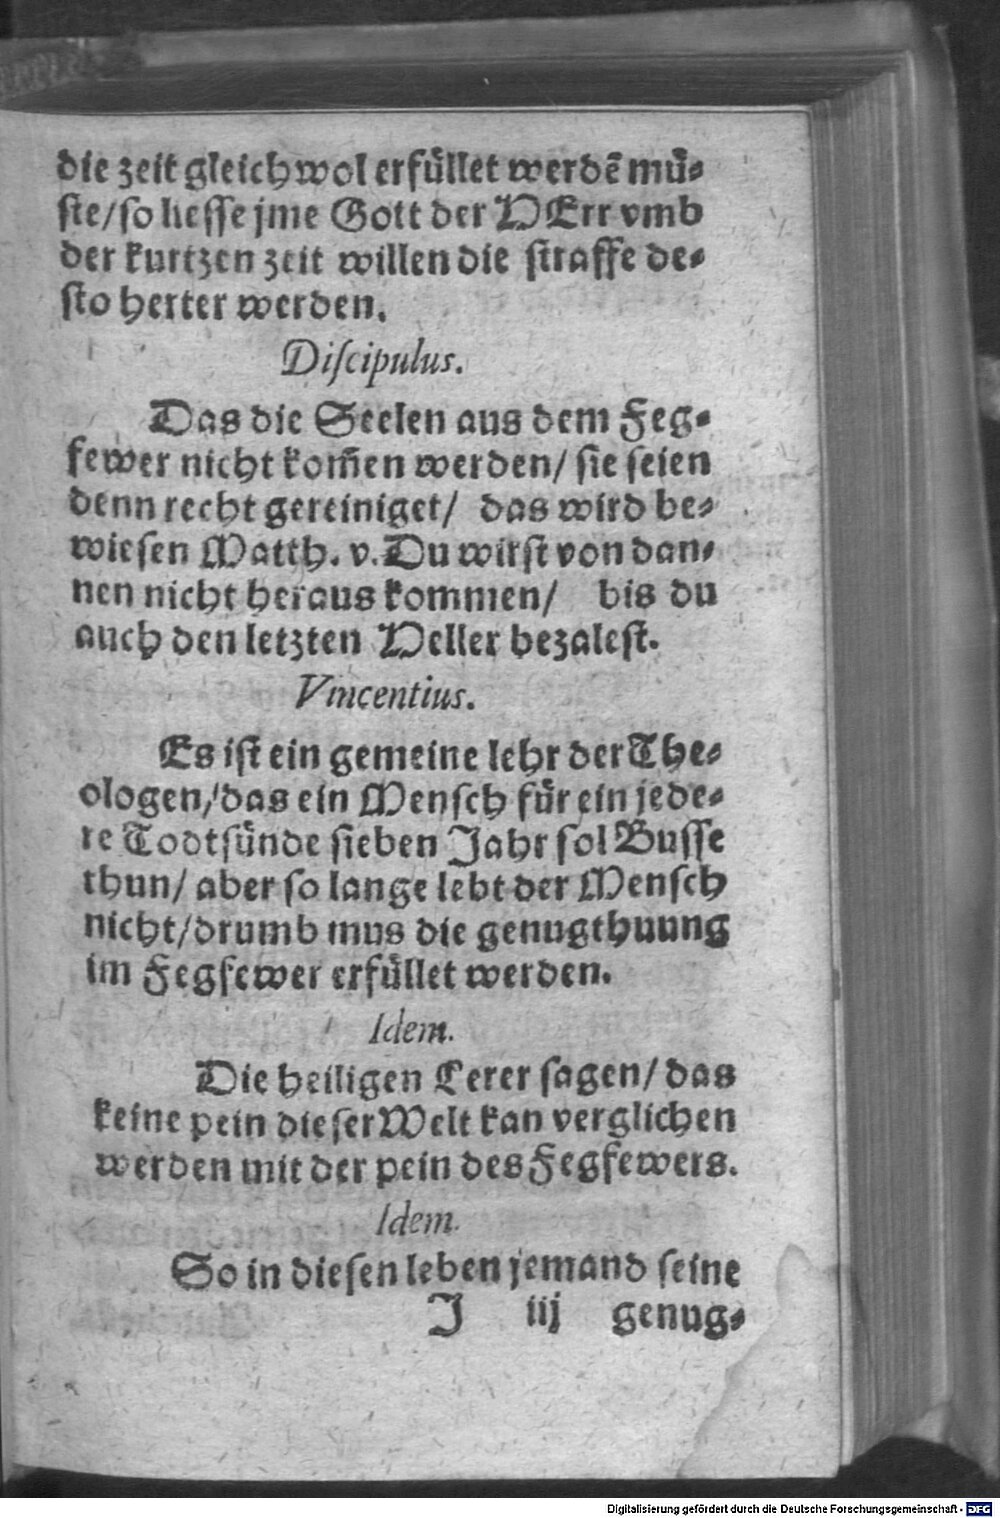 die zeit gleichwol erfüllet werdē mü-
ste/so liesse jme Gott der HErr vmb
der kurtzen zeit willen die straffe de-
sto herter werden.
Discipulus.
Das die Seelen aus dem Feg-
fewer nicht kom̄en werden/ sie seien
denn recht gereiniget/ das wird be-
wiesen Matth. v. Du wirst von dan-
nen nicht heraus kommen/ bis du
auch den letzten Heller bezalest.
Vincentius.
Es ist ein gemeine lehr der The-
ologen/das ein Mensch für ein jede-
re Todtsünde sieben Jahr sol Busse
thun/ aber so lange lebt der Mensch
nicht/drumb mus die genugthuung
im Fegfewer erfüllet werden.
Idem.
Die heiligen Lerer sagen/das
keine pein dieser Welt kan verglichen
werden mit der pein des Fegfewers.
Idem.
So in diesen leben jemand seine
J iij genug-
Digitalisierung gefördert durch die Deutsche Forschungsgemeinschaft - DFG